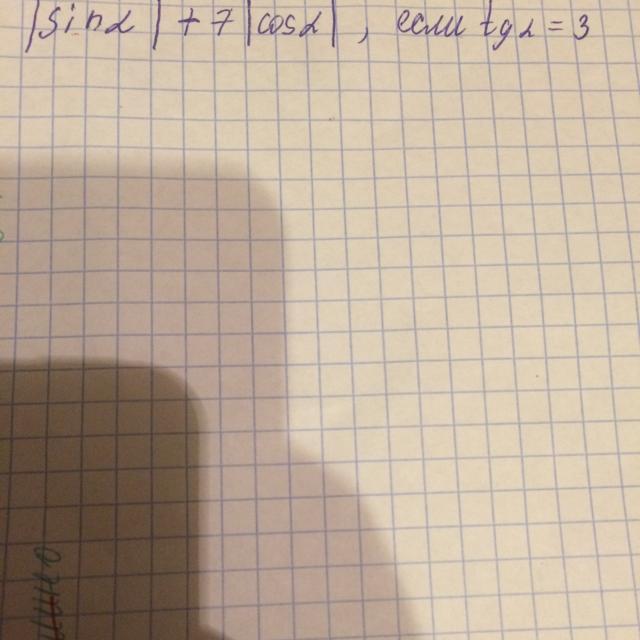 |sinα| + 7|cosα|, если tgα = 3